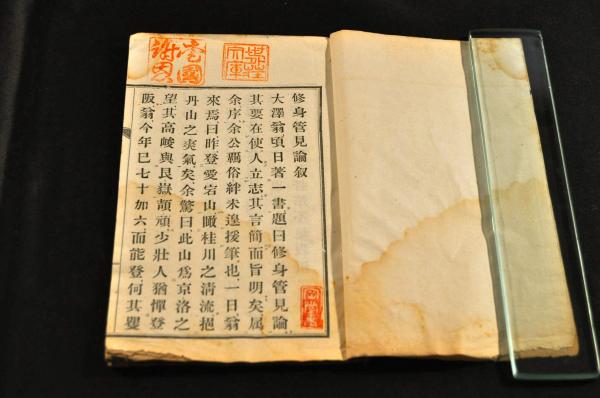 修身管見論叙
大澤翁頃日著一書題曰修身管見論
其要在使人立志其言簡而旨明矣属
余序余公羈俗絆未遑援筆也一日翁
來焉曰昨登愛宕山瞰桂川之清流挹
丹山之爽氣矣余驚曰此山爲京洛之
望其高峻與艮嶽頡頏少壯人猶憚登
阪翁今年已七十加六而能登何其矍